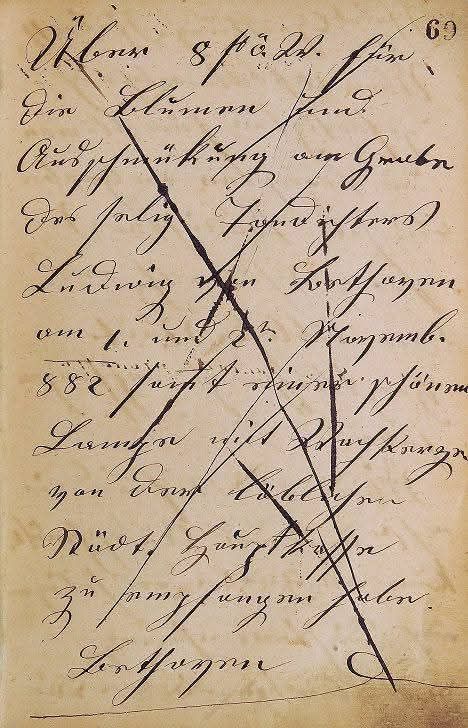 69
Über 8 fl ö. W. für
die Blumen und
Ausschmükung am Grabe
des selig Tondichters
Ludwig van Bethoven
am 1. und 2t. Novemb.
882 samt einer schönen
Lampe mit Wachskerze
von der löblichen
Städt. Hauptkasse
zu empfangen habe.
Bethoven